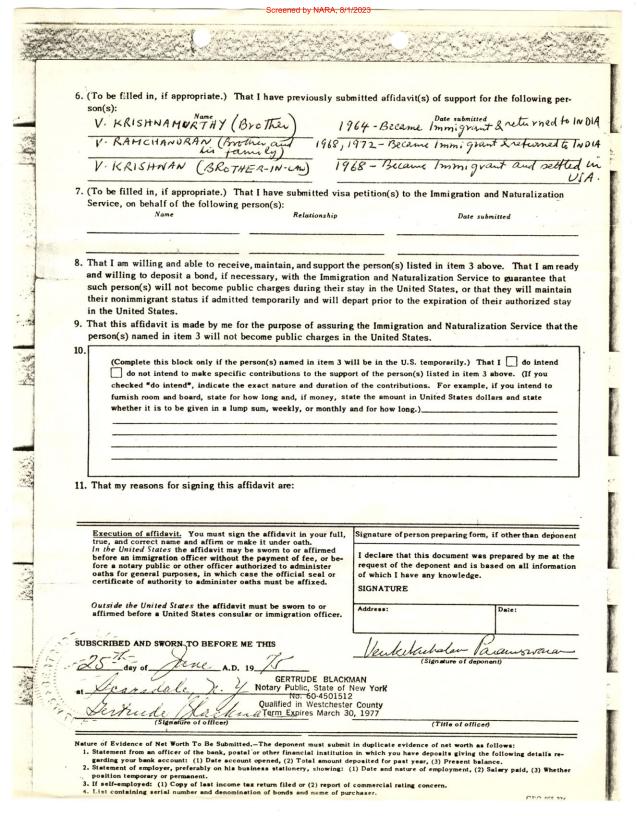 Screened by NARA, 8/1/2023
6. (To be filled in, if appropriate.) That I have previously submitted affidavit(s) of support for the following per-
son(s):
Name Date submitted
V. KRISHNAMURTHY (Brother) 1964 - Became Immigrant & returned to INDIA
V. RAMCHANDRAN (Brother and his family) 1968, 1972 - Became Immigrant & returned to INDIA
V. KRISHNAN (BROTHER-IN-LAW) 1968 - Became Immigrant and settled in USA.
7. (To be filled in, if appropriate.) That I have submitted visa petition(s) to the Immigration and Naturalization
Service, on behalf of the following person(s):
Name Relationship Date submitted
8. That I am willing and able to receive, maintain, and support the person(s) listed in item 3 above. That I am ready
and willing to deposit a bond, if necessary, with the Immigration and Naturalization Service to guarantee that
such person(s) will not become public charges during their stay in the United States, or that they will maintain
their nonimmigrant status if admitted temporarily and will depart prior to the expiration of their authorized stay
in the United States.
9. That this affidavit is made by me for the purpose of assuring the Immigration and Naturalization Service that the
person(s) named in item 3 will not become public charges in the United States.
10.
(Complete this block only if the person(s) named in item 3 will be in the U.S. temporarily.) That I do intend
do not intend to make specific contributions to the support of the person(s) listed in item 3 above. (If you
checked "do intend", indicate the exact nature and duration of the contributions. For example, if you intend to
furnish room and board, state for how long and, if money, state the amount in United States dollars and state
whether it is to be given in a lump sum, weekly, or monthly and for how long.)
11. That my reasons for signing this affidavit are:
Execution of affidavit. You must sign the affidavit in your full,
true, and correct name and affirm or make it under oath.
In the United States the affidavit may be sworn to or affirmed
before an immigration officer without the payment of fee, or be-
fore a notary public or other officer authorized to administer
oaths for general purposes, in which case the official seal or
certificate of authority to administer oaths must be affixed.
Outside the United States the affidavit must be sworn to or
affirmed before a United States consular or immigration officer.
Signature of person preparing form, if other than deponent
I declare that this document was prepared by me at the
request of the deponent and is based on all information
of which I have any knowledge.
SIGNATURE
Address: Date:
SUBSCRIBED AND SWORN TO BEFORE ME THIS
25th day of June A.D. 19 75
Venketachalam Parameswaran
(Signature of deponent)
at Scarsdale, N.Y
GERTRUDE BLACKMAN
Notary Public, State of New York
No. 60-4501512
Qualified in Westchester County
Term Expires March 30, 1977
Gertrude Blackman
(Signature of officer) (Title of officer)
Nature of Evidence of Net Worth To Be Submitted.—The deponent must submit in duplicate evidence of net worth as follows:
1. Statement from an officer of the bank, postal or other financial institution in which you have deposits giving the following details re-
garding your bank account: (1) Date account opened, (2) Total amount deposited for past year, (3) Present balance.
2. Statement of employer, preferably on his business stationery, showing: (1) Date and nature of employment, (2) Salary paid, (3) Whether
position temporary or permanent.
3. If self-employed: (1) Copy of last income tax return filed or (2) report of commercial rating concern.
4. List containing serial number and denomination of bonds and name of purchaser.